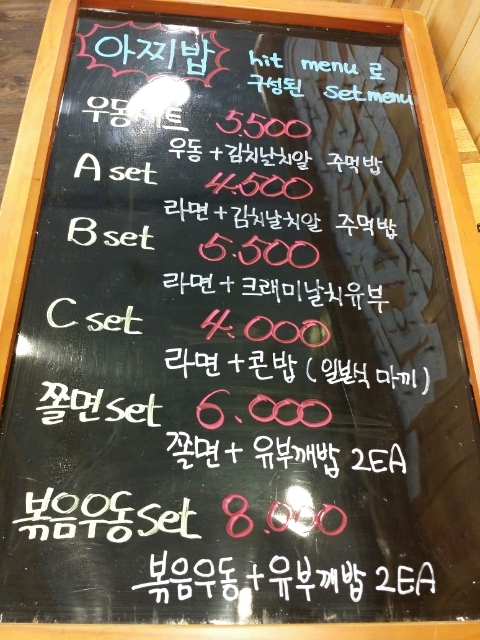 아찌밥
hit menu 로
구성된 set menu
우동세트 5.500
우동+김치날치알 주먹밥
A set 4.500
라면+김치날치알 주먹밥
B set 5.500
라면+크래미날치유부
C set 4.000
라면+콘밥(일본식 마끼)
쫄면set 6.000
쫄면+유부깨밥 2EA
볶음우동set 8.000
볶음우동+유부깨밥 2EA